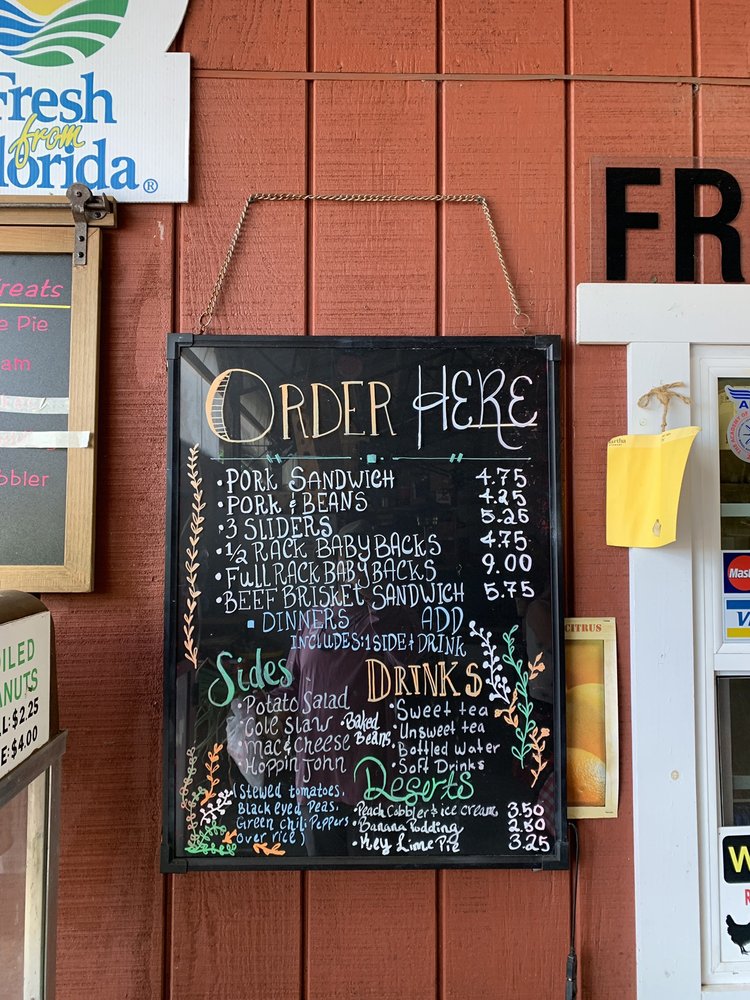 Fresh
from
lorida®
FR
reats
e Pie
am
bbler
ORDER HERE
• PORK SANDWICH 4.75
• PORK & BEANS 4.25
• 3 SLIDERS 5.25
• 1/2 RACK BABY BACKS 4.75
• FULL RACK BABY BACKS 9.00
• BEEF BRISKET SANDWICH 5.75
DINNERS ADD
INCLUDES: 1 SIDE & DRINK
Sides
• Potato Salad
• Cole Slaw
• Baked Beans
• Mac & Cheese
• Hoppin John
(Stewed tomatoes,
Black eyed Peas,
Green chili Peppers
over rice)
DRINKS
• Sweet tea
• Unsweet tea
• Bottled Water
• Soft Drinks
Deserts
• Peach Cobbler & ice cream 3.50
• Banana Pudding 2.50
• Key Lime Pie 3.25
CITRUS
OILED
ANUTS
L: $2.25
E: $4.00
artha
Mast
VI
W
R